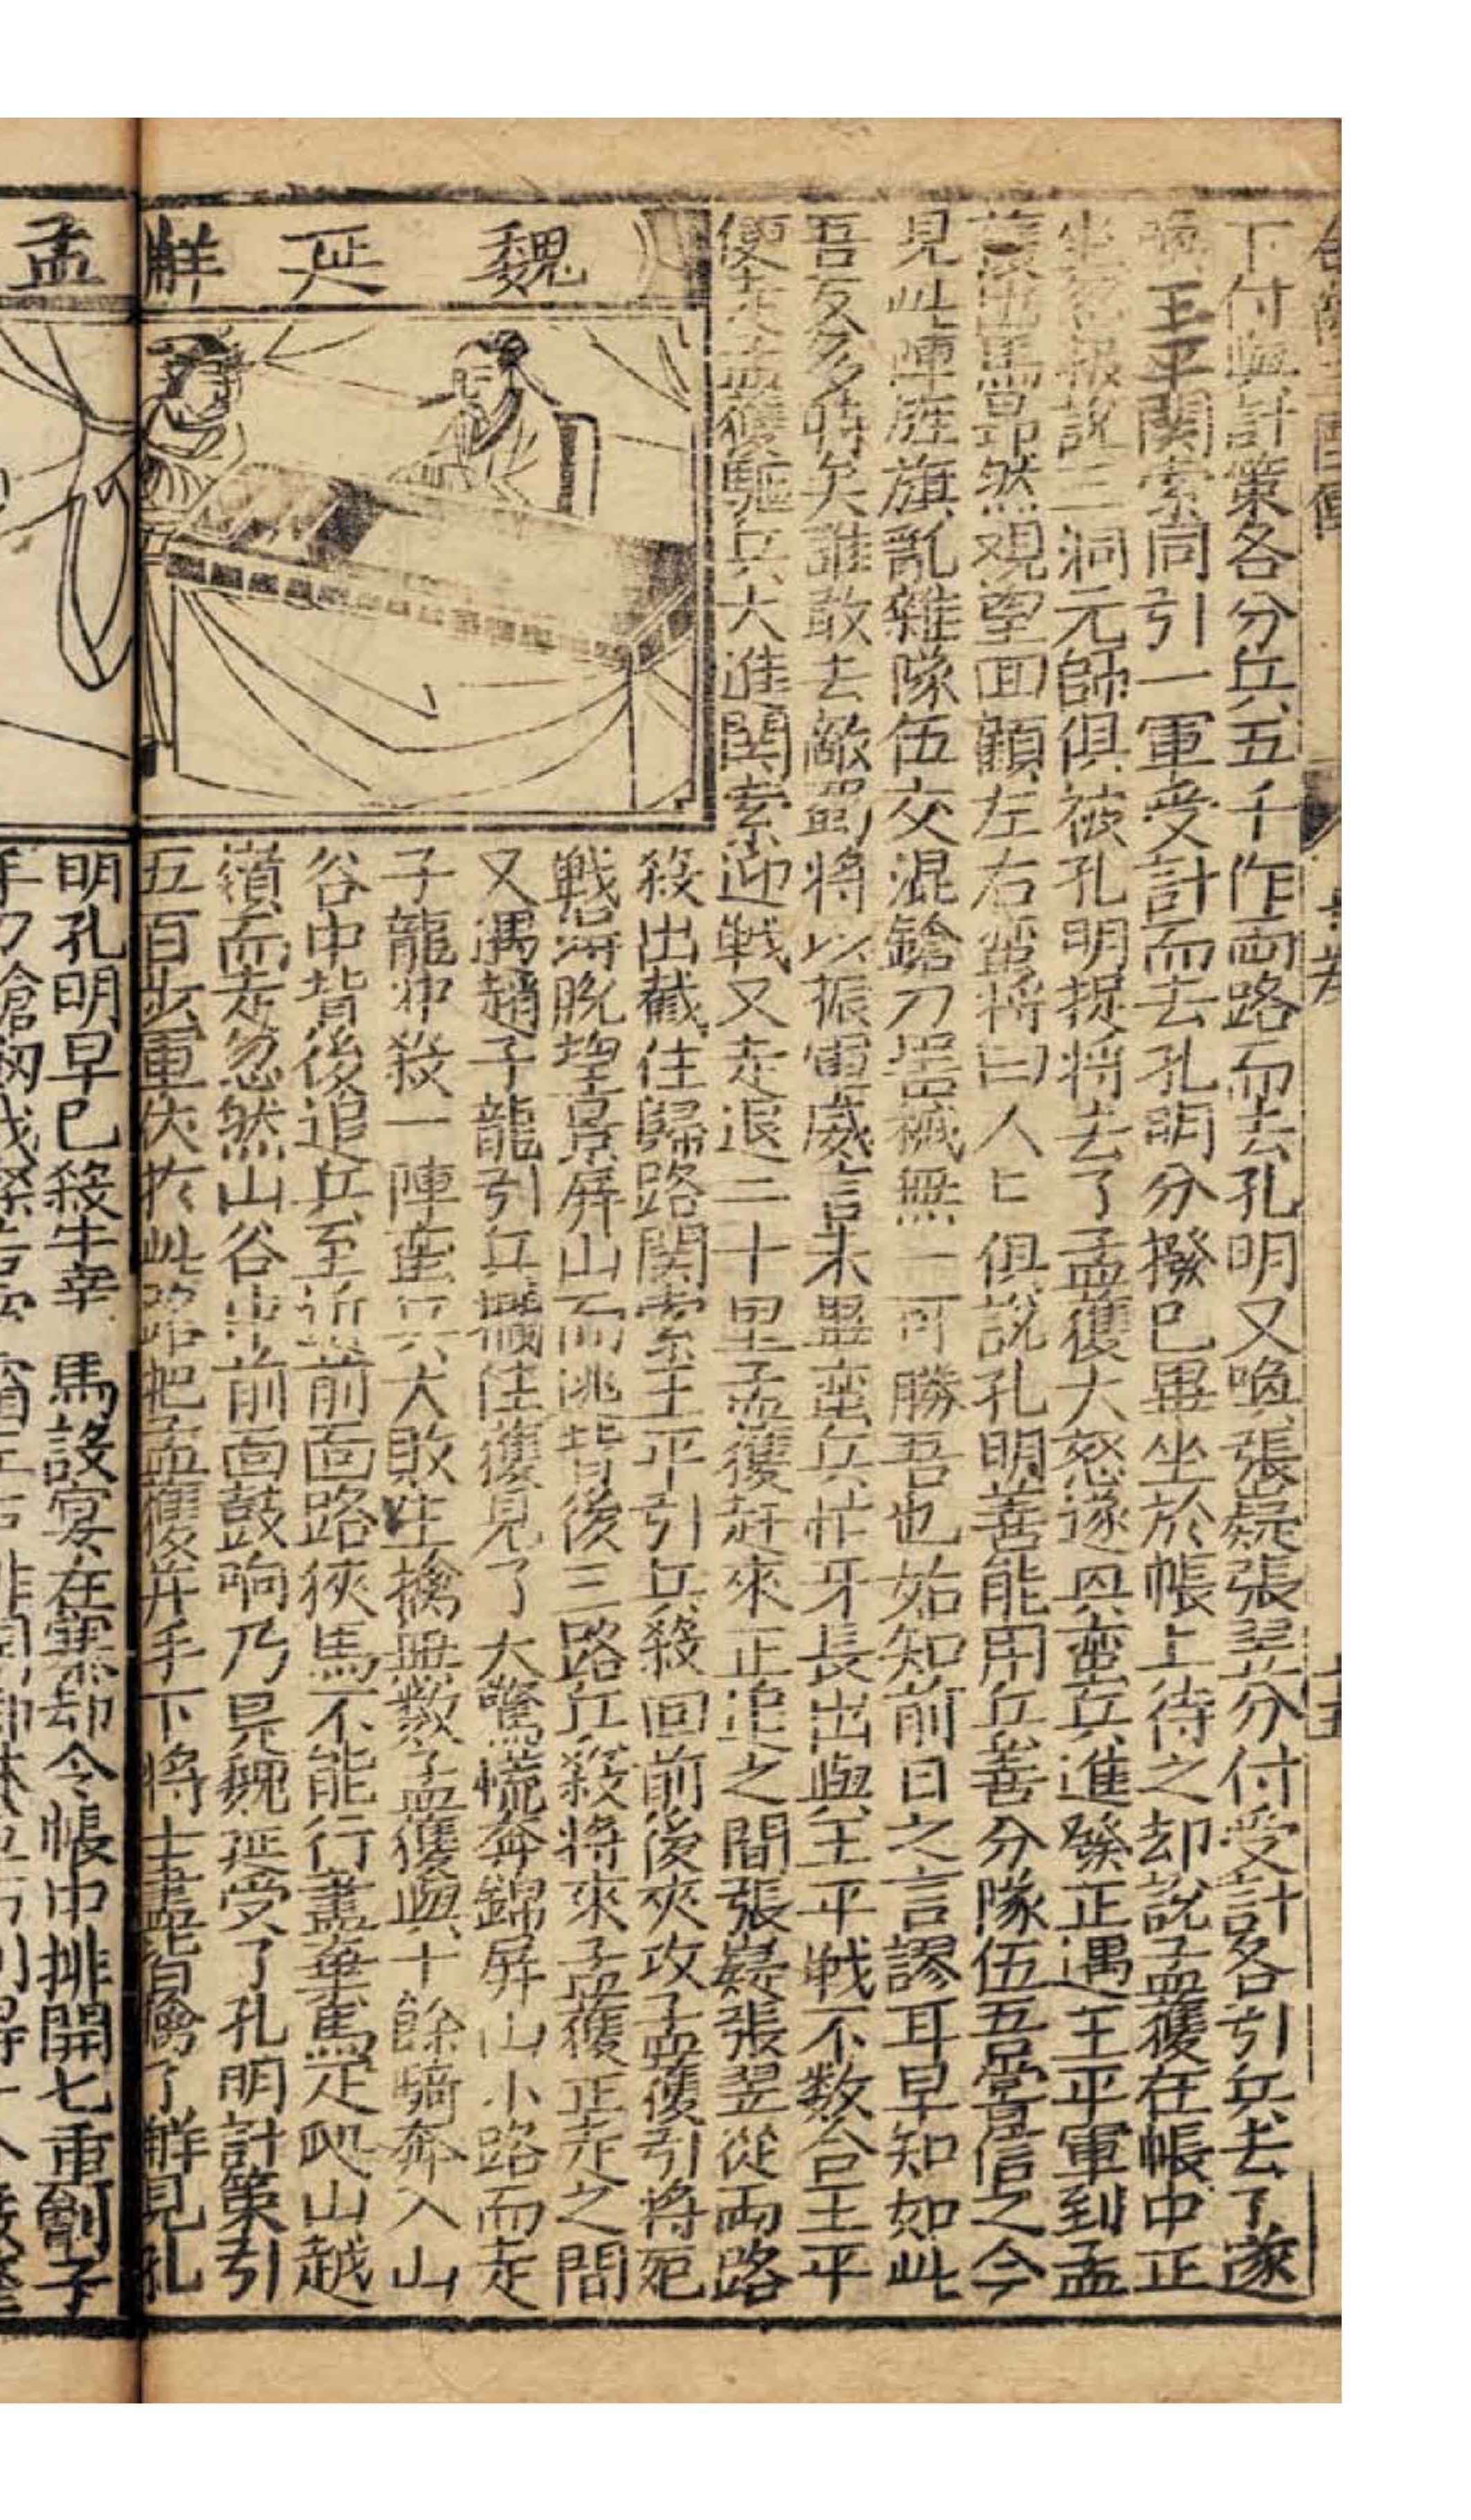 下付與計策各分兵五千作両路而去孔明又喚張嶷張翌分付受計各引兵去了遂
喚王平関索同引一軍受計而去孔明分撥已畢坐於帳上待之却説孟獲在帳中正
坐忽報説三洞元師俱被孔明捉將去了孟獲大怒遂興蛮兵進發正遇王平軍到孟
獲出馬昂然观望回顧左右蛮將曰人〻俱説孔明善能用兵善分隊伍吾嘗信之今
見此陣旌旗亂雜隊伍交混鎗刀噐械無一可勝吾也始知前日之言謬耳早知如此
吾反多時矣誰敢去敵蜀將以振軍威言未畢蛮兵忙牙長出與王平戦不数合王平
便走孟獲驅兵大進関索迎戦又走退二十里孟獲赶來正追之間張嶷張翌從両路
殺出截住歸路関索王平引兵殺回前後夾攻孟獲引將死
戰得脱望景屏山而逃背後三路兵殺將來孟獲正走之間
又遇趙子龍引兵攔住獲見了大驚慌奔錦屏山小路而走
子龍冲殺一陣蛮兵大敗生擒無数孟獲與十餘騎奔入山
谷中背後追兵至近前面路狹馬不能行盡棄馬疋爬山越
嶺而走忽然山谷中前面鼓响乃是魏延受了孔明計策引
五百步軍伏於此路把孟獲并手下將士盡皆擒了觧見孔
魏延觧孟
明孔明早已殺牛宰馬設宴在寨却令帳中排開七重劊子